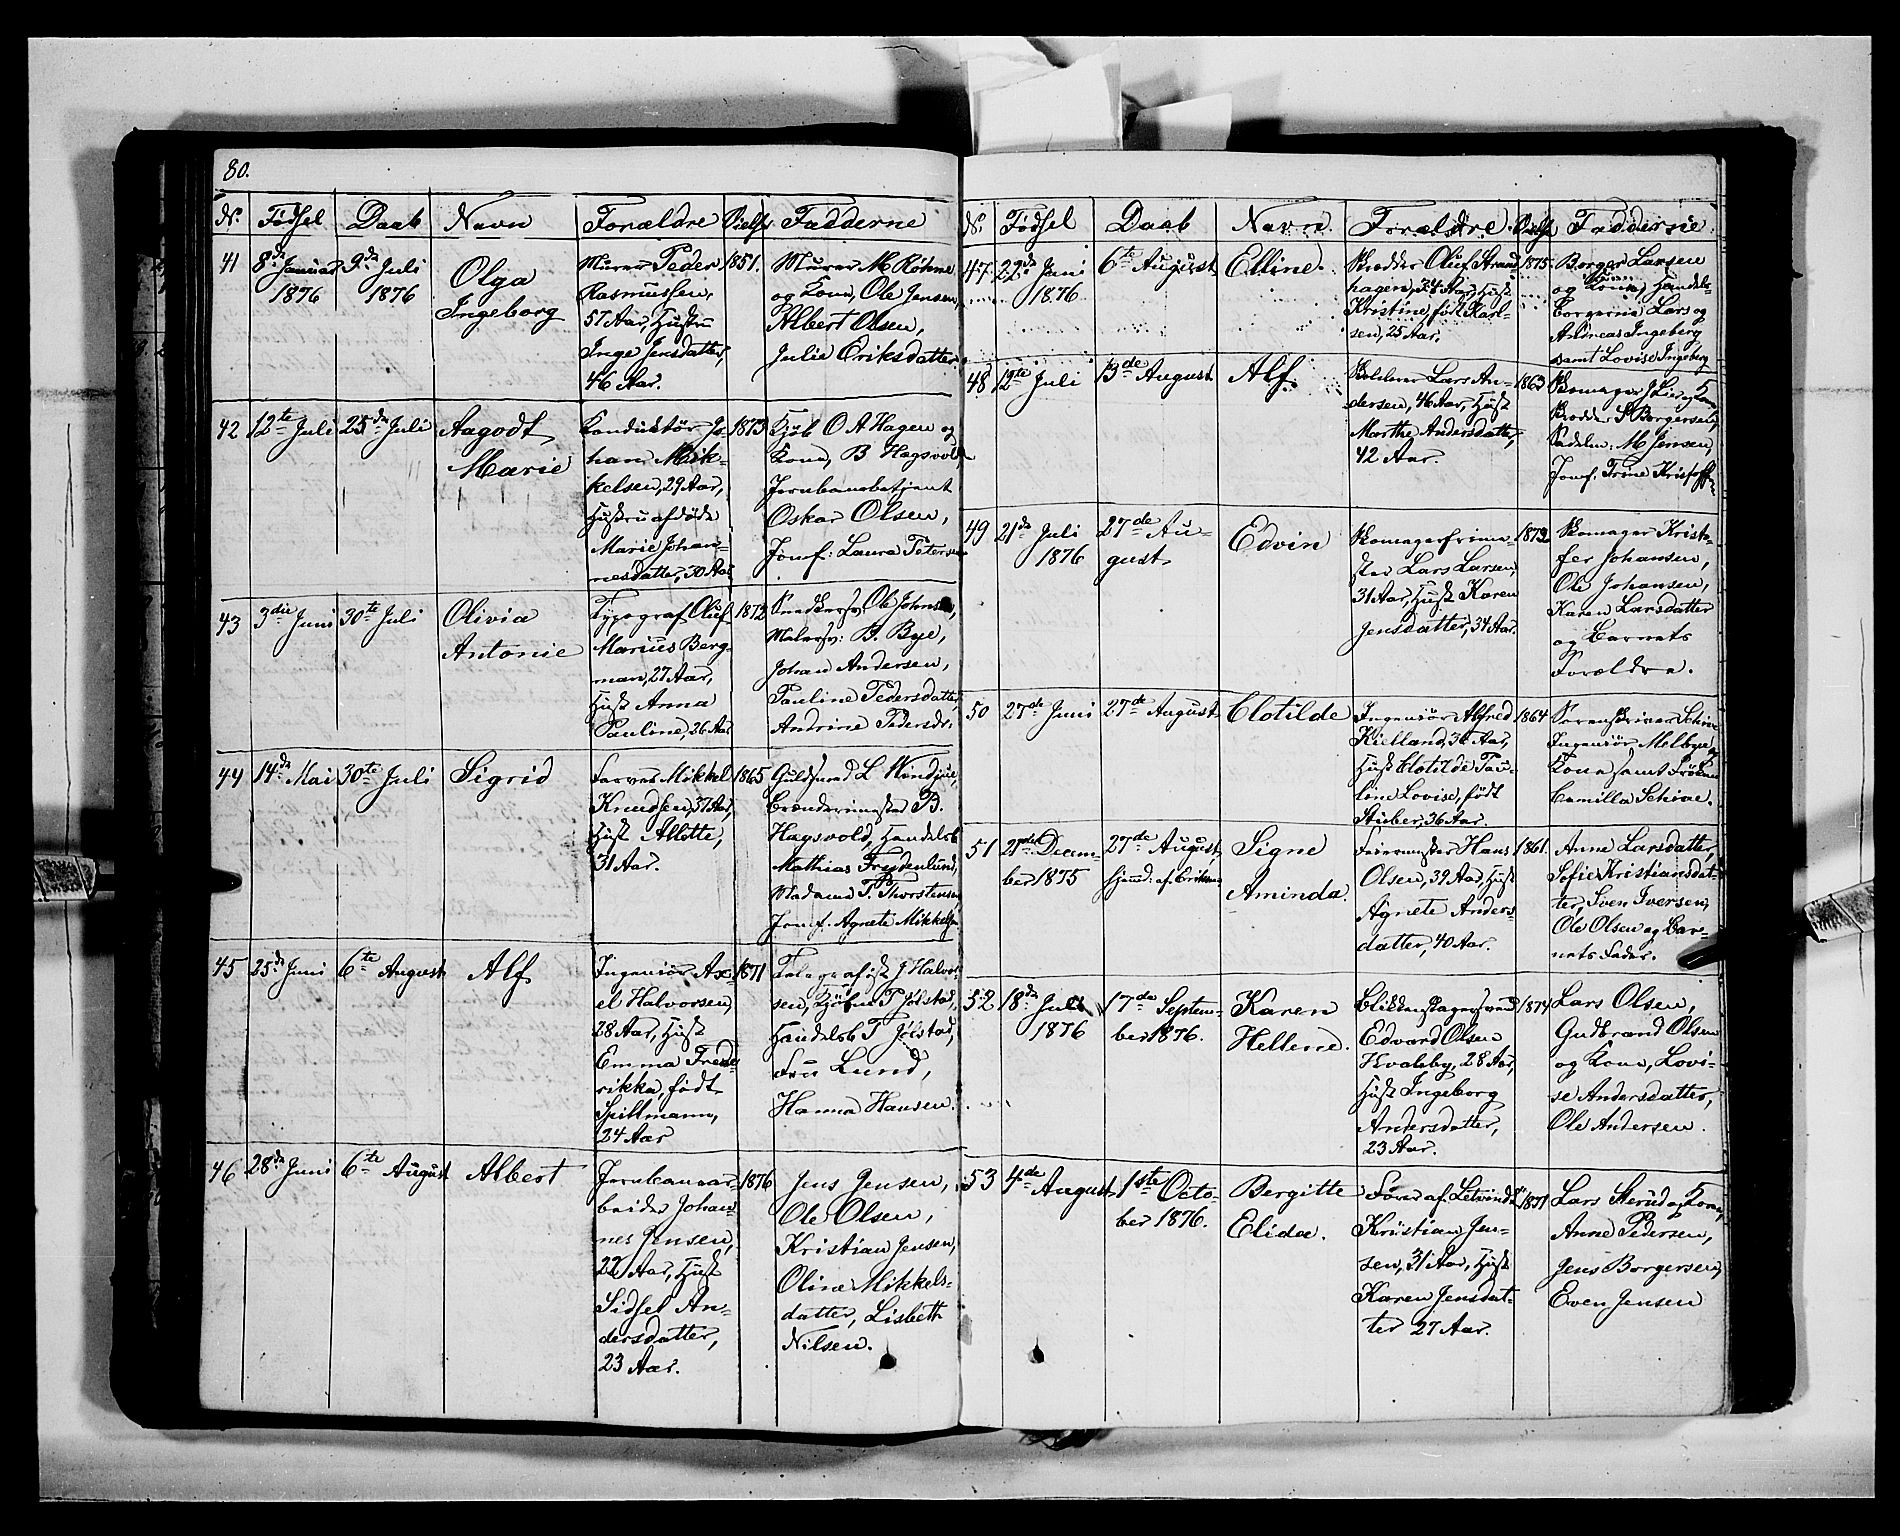 80.
No. Fødsel Daab Navn Forældre Vielse Fadderne
41 8de Januar 1876 9de Juli 1876
Olga
Ingeborg
Murer Peder
Rasmussen,
57 Aar, Hustru
Inge Jensdatter,
46 Aar.
1851.
Murer M Røhne
og Kone, Ole Jensen,
Albert Olsen,
Julie Eriksdatter.
42 12te Juli 25de Juli
Aagodt
Marie
Konduktør Jo-
han Mik-
kelsen, 29 Aar,
Hustru afdøde
Marie Johan-
nesdatter, 30 Aar
1873
Kjøb O A Hagen og
Kone, B Hagsvold
Jernbanebetjent
Oskar Olsen,
Jomf: Laura Petersen
43 3die Juni 30te Juli
Olivia
Antonie
Typograf Oluf
Marius Berg-
man, 27 Aar,
Hust Anna
Pauline, 26 Aar
1872
Snedkersv. Ole Johnsen,
Malersv: B. Bye,
Johan Andersen,
Pauline Pedersdatter,
Andrine Pedersdr.
44 14de Mai 30te Juli
Sigrid
Farver Mikkel
Knudsen, 37 Aar,
Hust Alette,
31 Aar.
1865
Guldsmed L Wendjue,
Brændevinsster B.
Hagsvold, Handelsb
Mathias Frydenlund,
Madame P. Thorstensen
Jomf. Agnete Mikkelsen
45 25de Juni 6te August
Alf
Ingeniør Ax-
el Halvorsen,
28 Aar, Hust
Emma Frede-
rikka, født
Spillmann,
24 Aar
1871
Telegrafist J Halvor-
sen, Kjøbm P Jølstad,
Handelsb T Jølstad,
Fru Lund,
Hanna Hansen.
46 28de Juni 6te August
Albert
Jernbanear-
beider Johan-
nes Jensen,
22 Aar, Hust
Sidsel An-
dersdatter,
23 Aar.
1876
Jens Jensen,
Ole Olsen,
Kristian Jensen,
Oline Mikkels-
datter, Lisbeth
Nilsen.
No. Fødsel Daab Navn Forældre Vielse Fadderne
47 22de Juni 1876 6te August
Elline.
Skrædder Oluf Strand
hagen, 24 Aar, Hust
Kristine, født Karl-
sen, 25 Aar.
1875.
Borger Larsen
og Kone, Handels-
borgerne Lars og
Andreas Ingeberg
samt Lovise Ingeberg
48 12te Juli 13de August
Alf.
Lars An-
dersen, 46 Aar, Hust
Marthe Andersdatter,
42 Aar.
1863
Skomager J Lie og Kone,
Skrædder S Borgersen,
Sadelm: M Jensen,
Jomf: Trine Kristoff
49 21de Juli 1876 27de Au-
gust
Edvin
Skomagerfrime-
ster Lars Larsen,
31 Aar, Hust Karen
Jensdatter, 34 Aar.
1872
Skomager Kristo-
fer Johansen,
Ole Johansen,
Karen Larsdatter
og Barnets
Forældre.
50 27de Juni 27de August
Clotilde
Ingeniør Alfred
Kielland, 36 Aar,
Hust Clotilde Pau-
line Lovise, født
Stuber, 36 Aar.
1864
Sorenskriver Schive
Ingeniør Melbye og
Kone samt Frøken
Camilla Schive.
51 21de Decem-
ber 1875
27de August,
hjemd: af Eriksen
Signe
Aminda.
Feiermester Hans
Olsen, 39 Aar, Hust
Agnete Anders-
datter, 40 Aar.
1861.
Anne Larsdatter,
Sofie Kristiansdat-
ter, Sven Iversen,
Ole Olsen og Bar-
nets Fader.
52 18de Juli 1876
17de Septem-
ber 1876.
Karen
Hellene.
Blikkenslagersvend
Edvard Olsen
Kvalsby, 28 Aar,
Hust Ingeborg
Andersdatter,
23 Aar.
1874
Lars Olsen,
Gudbrand Olsen
og Kone, Lovi-
se Andersdatter,
Ole Andersen.
53 4de August 1ste Octo-
ber 1876.
Bergitte
Elida.
Kristian Jen-
sen, 31 Aar, Hust
Karen Jensdat-
ter 27 Aar.
1871
Lars Sterud og Kone,
Anne Pedersen,
Jens Borgersen,
Even Jensen